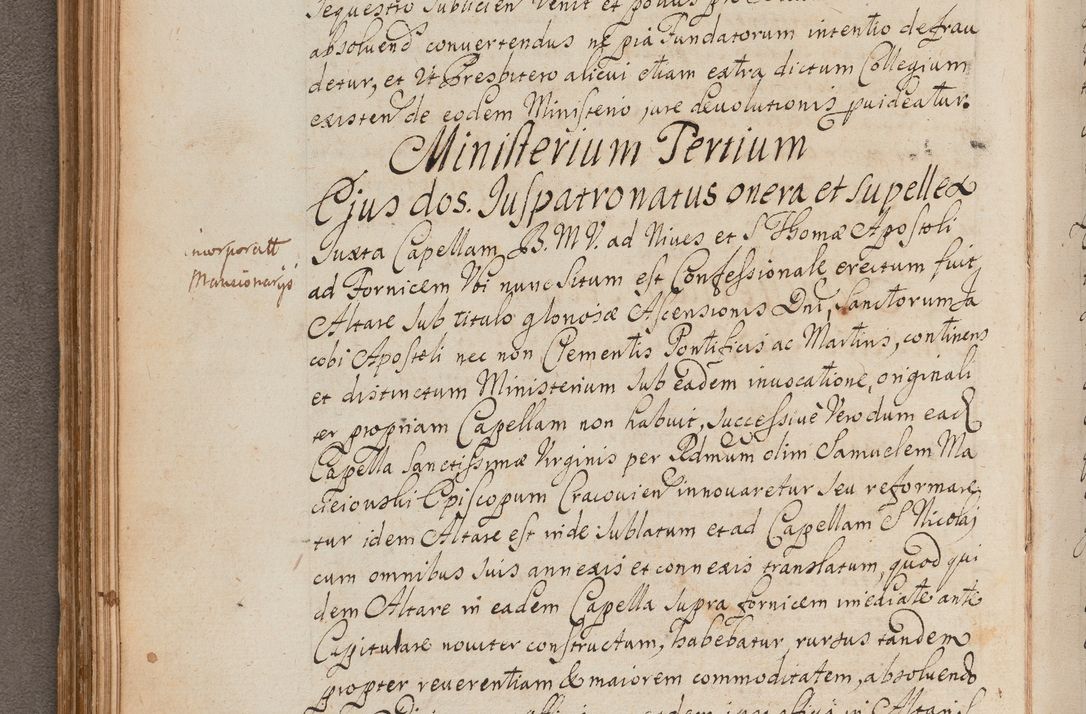 sequestro subiicien venit et potius
absoluend conuertendus ne pia Fundatorum intentio defrau
detur, et ut Presbitero alicui etiam extra dictum Collegium
existen de eodem Ministerio jure deuolutionis puideatur.
Ministerium Tertium
Ejus dos. Juspatronatus onera et supellex
incorporatt
Mansionarijs
Juxta Capellam B. M. V. ad Niues et S Thomæ Apostoli
ad Fornicem Vbi nunc situm est Confessionale erectum fuit
Altare sub titulo gloriosæ Ascensionis Dni, Sanctorum Ja
cobi Apostoli nec non Clementis Pontificis ac Martiris, continens
et distinctum Ministerium sub eadem inuocatione, originali
ter propriam Capellam non habuit, successiuè Vero dum ead
Capella Sanctissimæ Virginis per Rdmum olim Samuelem Ma
cieiowski Episcopum Cracouien innouaretur seu reformare
tur idem Altare est inde sublatum et ad Capellam S Nicolaj
cum omnibus suis annexis et connexis translatum, quod qui
dem Altare in eadem Capella supra fornicem imediate ante
Capitulare nouiter constructam, habebatur, rursus tandem
propter reuerentiam & maiorem commoditatem, absoluendo